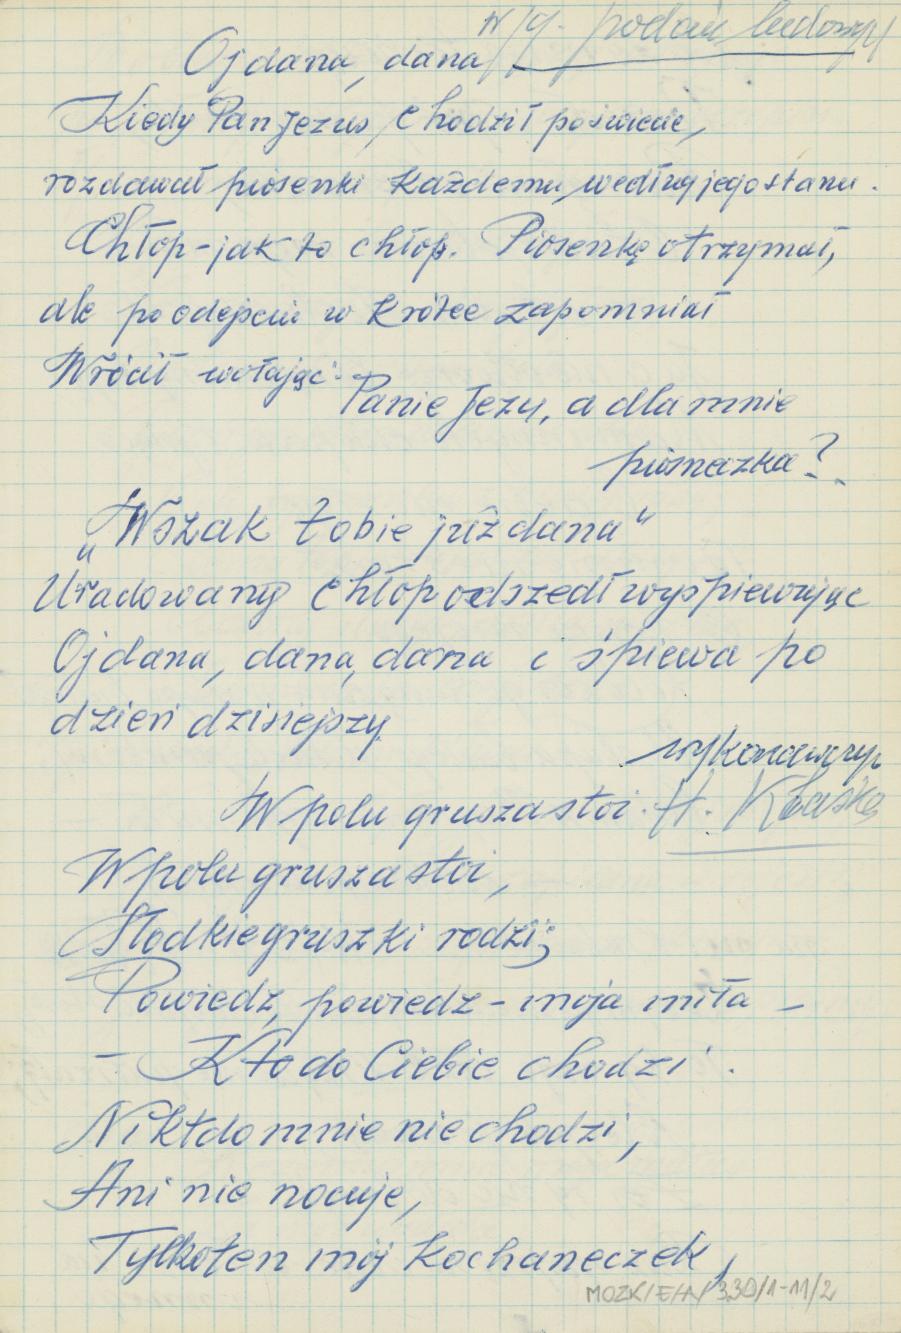 W/g. podań ludowych
Ojdana, dana
Kiedy Pan Jezus, chodził poświecie,
rozdawał piosenki każdemu, według jego stanu.
Chłop-jak to chłop. Piosenkę otrzymał,
ale po odejściu w krótce zapomniał
Wrócił wołając:-
Panie Jezu, a dla mnie
piosnezka?
„Wszak tobie już dana"
Uradowany chłop odszedł wyśpiewując
Ojdana, dana, dana i śpiewa po
dzień dzisiejszy
wykonawczyni
W polu grusza stoi. H. Kłaska
W polu grusza stoi,
Słodkie gruszki rodzi;
Powiedz, powiedz - moja miła -
- Kto do Ciebie chodzi.
Nikt do mnie nie chodzi,
Ani nie nocuje,
Tylko ten mój kochaneczek,
MOZK/E/A/330/1-11/2